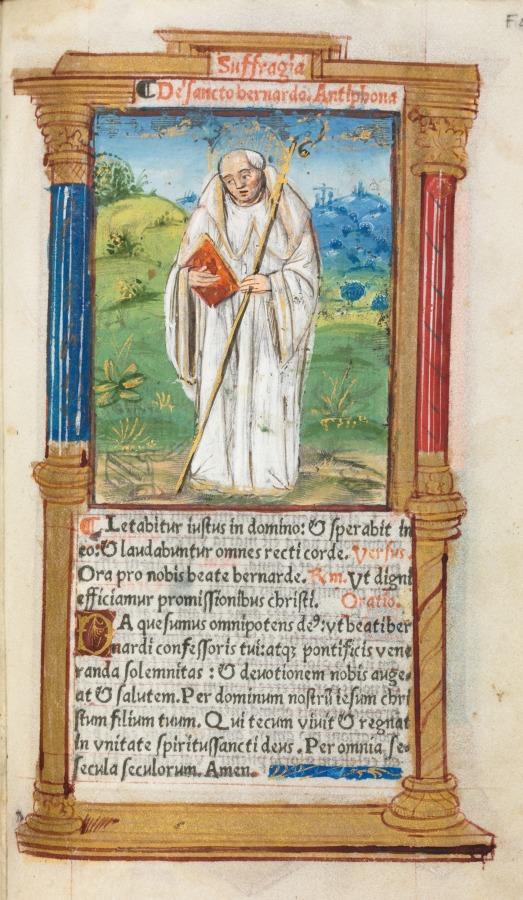 Suffragia
De sancto bernardo. Antiphona
Letabitur iustus in domino: & sperabit in
eo: & laudabuntur omnes recti corde. Versus.
Ora pro nobis beate bernarde. Rm. Vt digni
efficiamur promissionibus christi. Oratio.
DA quesumus omnipotens deꝰ: vt beati ber
nardi confessoris tui: atqꝫ pontificis vene
randa solemnitas: & deuotionem nobis auge-
at & salutem. Per dominum nostrū iesum chri
stum filium tuum. Qui tecum viuit & regnat
in vnitate spiritussancti deus. Per omnia se-
secula seculorum. Amen.